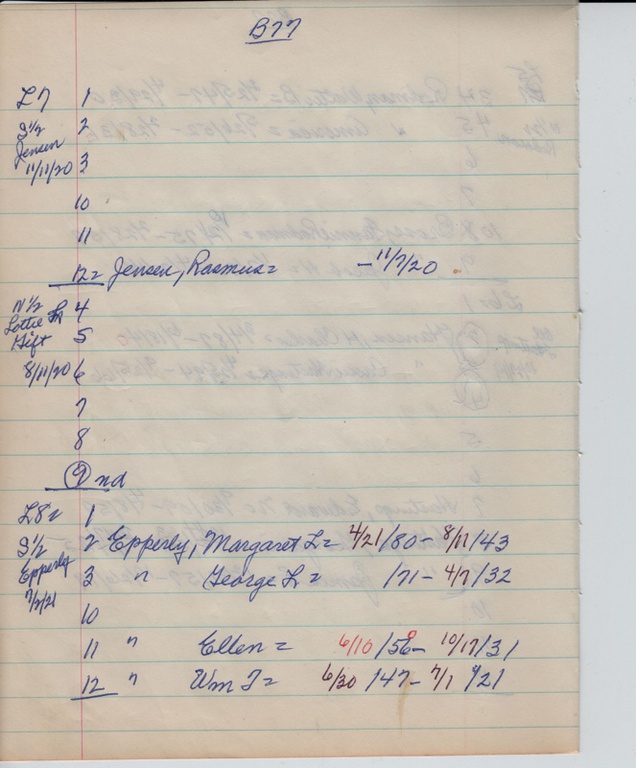 B77
L7 1
S 1/2 2
Jensen
11/11/20 3
10
11
12= Jensen, Rasmus= -11/7/20
N 1/2 4
Lottie L
Hift 5
8/11/20 6
7
8
9 nd
L8= 1
S 1/2 2 Epperly, Margaret L= 4/21/80- 8/11/43
Epperly 3 " George L= /71- 4/7/32
7/2/21
10
11 " Ellen= 6/10/56- 10/17/31
12 " Wm T= 6/30/47- 7/1/21